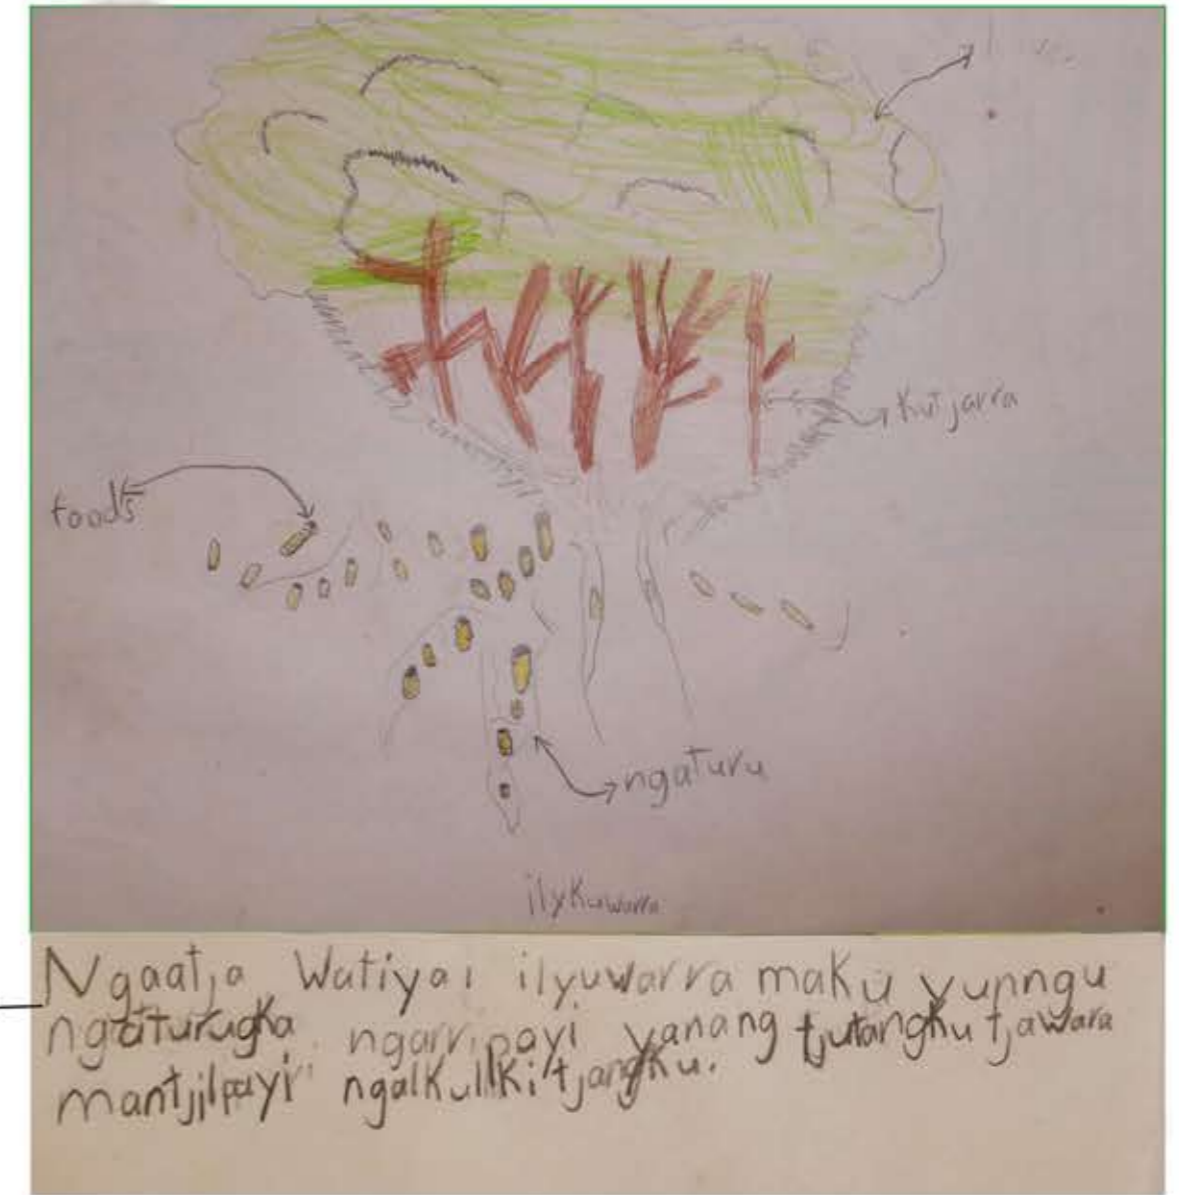 foods
Kutjarra
ngaturu
ilyKuwarra
Ngaatja Watiyai ilyuwarra maku yunngu
ngarripayi yanang tjutangku tjawara
mantjilpayi ngalKullKitjangKu.